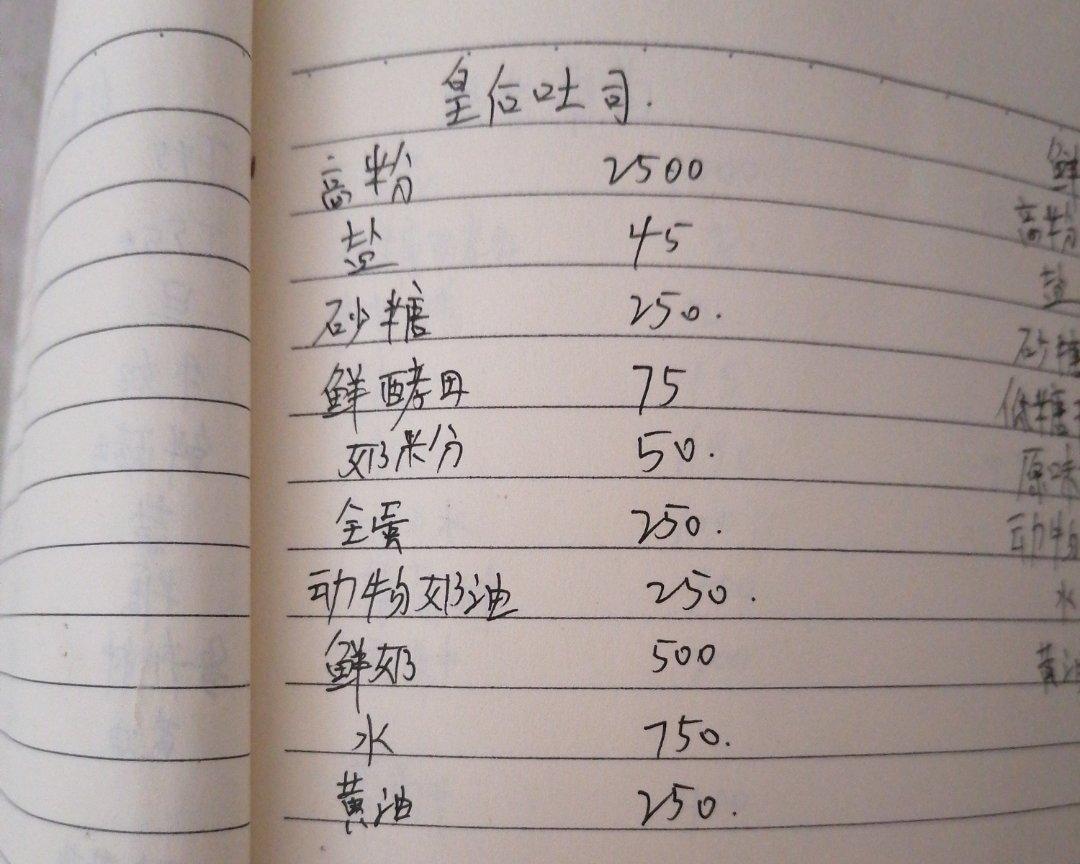 皇后吐司.
高粉 2500
盐 45
砂糖 250.
鲜酵母 75
奶米分 50.
全蛋 250.
动物奶油 250.
鲜奶 500
水 750.
黄油 250.
鲜
高粉
盐
砂糖
低糖
原味
动物
水
黄油